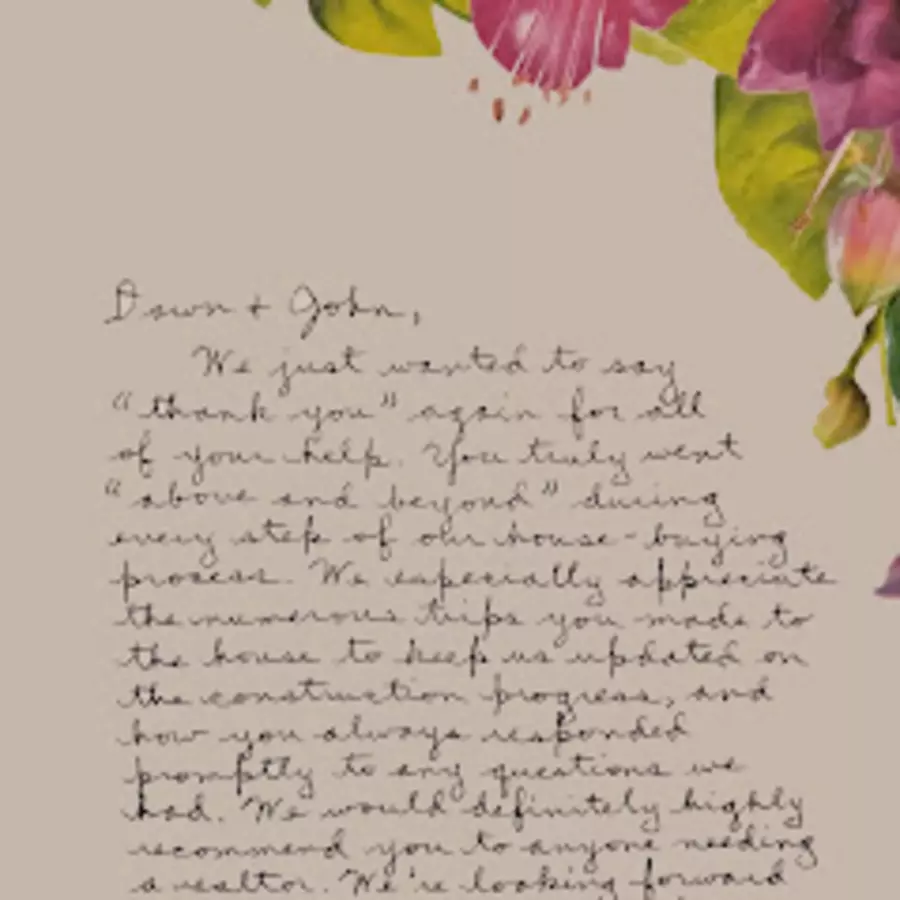 Dawn + John,
We just wanted to say
"thank you" again for all
of your help. You truly went
"above and beyond" during
every step of our house-buying
process. We especially appreciate
the numerous trips you made to
the house to keep us updated on
the construction progress, and
how you always responded
promptly to any questions we
had. We would definitely highly
recommend you to anyone needing
a realtor. We're looking forward